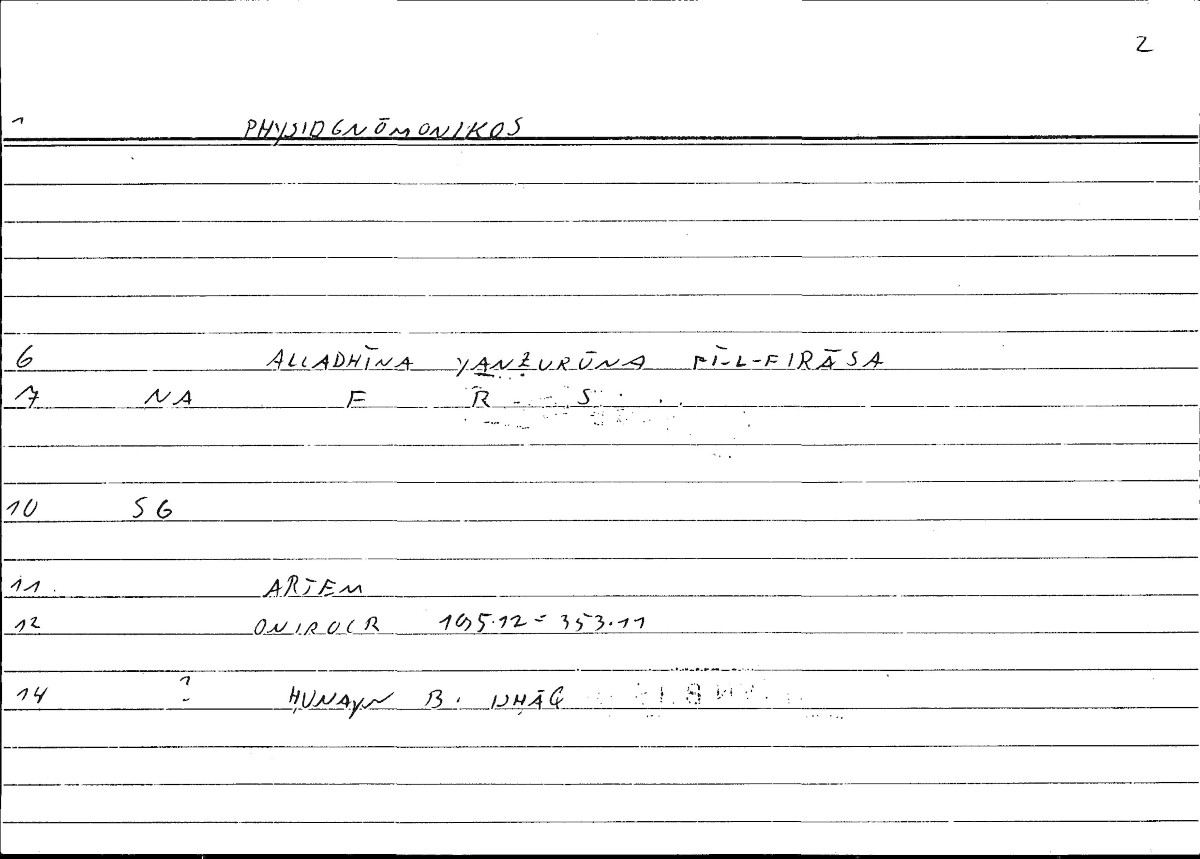 2
1 PHYSIOGNŌMONIKOS
6 ALLADHĪNA YANẒURŪNA FĪ-L-FIRĀSA
7 NA F R S
10 SG
11 ARTEM
12 ONIROCR 195.12 = 353.11
14 ? ḤUNAYN B. ISḤĀQ